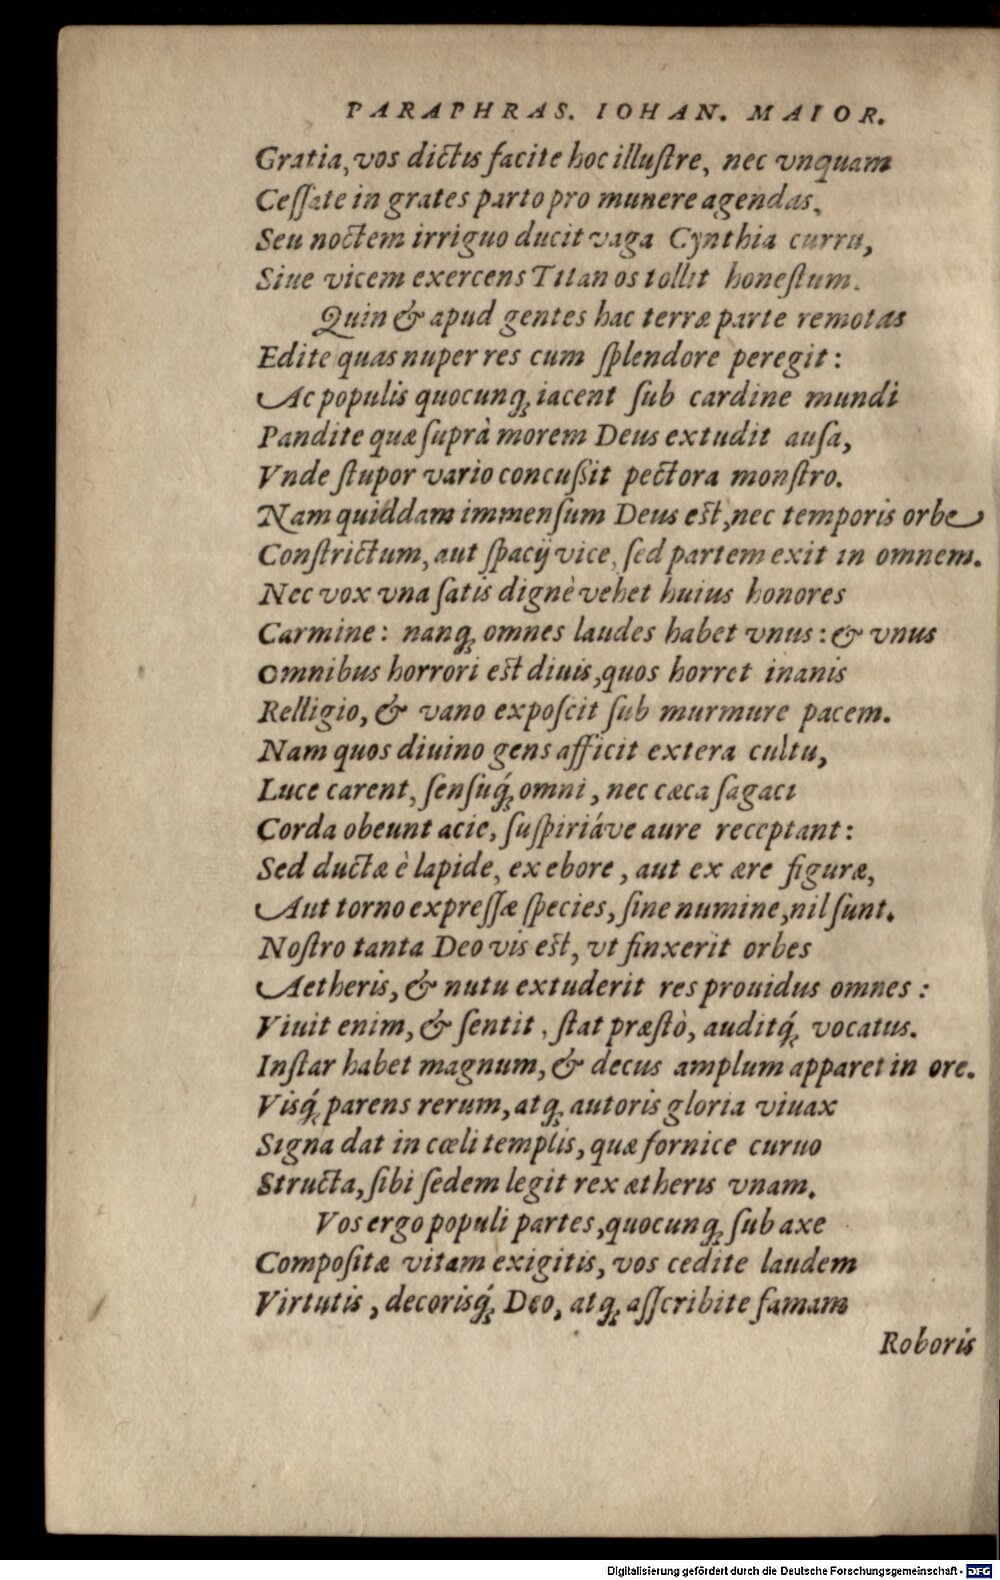 PARAPHRAS. IOHAN. MAIOR.
Gratia, vos dictis facite hoc illuſtre, nec vnquam
Ceſſate in grates parto pro munere agendas,
Seu noctem irriguo ducit vaga Cynthia curru,
Siue vicem exercens Titan os tollit honeſtum.
Quin & apud gentes hac terræ parte remotas
Edite quas nuper res cum ſplendore peregit:
Ac populis quocunq; iacent ſub cardine mundi
Pandite quæ ſuprà morem Deus extudit auſa,
Vnde ſtupor vario concuſsit pectora monſtro.
Nam quiddam immenſum Deus eſt, nec temporis orbe
Conſtrictum, aut ſpacij vice, ſed partem exit in omnem.
Nec vox vna ſatis dignè vehet huius honores
Carmine: nanq; omnes laudes habet vnus: & vnus
Omnibus horrori eſt diuis, quos horret inanis
Relligio, & vano expoſcit ſub murmure pacem.
Nam quos diuino gens afficit extera cultu,
Luce carent, ſenſuq́; omni, nec cæca ſagaci
Corda obeunt acie, ſuſpiriáve aure receptant:
Sed ductæ è lapide, ex ebore, aut ex ære figuræ,
Aut torno expreſſæ ſpecies, ſine numine, nil ſunt.
Noſtro tanta Deo vis eſt, vt finxerit orbes
Aetheris, & nutu extuderit res prouidus omnes:
Viuit enim, & ſentit, ſtat præſtò, auditq́; vocatus.
Inſtar habet magnum, & decus amplum apparet in ore.
Visq́; parens rerum, atq; autoris gloria viuax
Signa dat in cœli templis, quæ fornice curuo
Structa, ſibi ſedem legit rex ætheris vnam.
Vos ergo populi partes, quocunq; ſub axe
Compoſitæ vitam exigitis, vos cedite laudem
Virtutis, decorisq́; Deo, atq; aſſcribite famam
Roboris
Digitalisierung gefördert durch die Deutsche Forschungsgemeinschaft - DFG